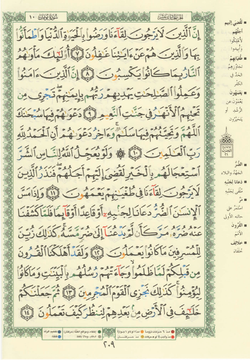 إِنَّ ٱلَّذِينَ لَا يَرْجُونَ لِقَآءَنَا وَرَضُوا۟ بِٱلْحَيَوٰةِ ٱلدُّنْيَا وَٱطْمَأَنُّوا۟
بِهَا وَٱلَّذِينَ هُمْ عَنْ ءَايَـٰتِنَا غَـٰفِلُونَ ٧ أُو۟لَـٰٓئِكَ مَأْوَىٰهُمُ
ٱلنَّارُ بِمَا كَانُوا۟ يَكْسِبُونَ ٨ إِنَّ ٱلَّذِينَ ءَامَنُوا۟
وَعَمِلُوا۟ ٱلصَّـٰلِحَـٰتِ يَهْدِيهِمْ رَبُّهُم بِإِيمَـٰنِهِمْ ۖ تَجْرِى مِن
تَحْتِهِمُ ٱلْأَنْهَـٰرُ فِى جَنَّـٰتِ ٱلنَّعِيمِ ٩ دَعْوَىٰهُمْ فِيهَا سُبْحَـٰنَكَ
ٱللَّهُمَّ وَتَحِيَّتُهُمْ فِيهَا سَلَـٰمٌ ۚ وَءَاخِرُ دَعْوَىٰهُمْ أَنِ ٱلْحَمْدُ لِلَّهِ
رَبِّ ٱلْعَـٰلَمِينَ ١٠ وَلَوْ يُعَجِّلُ ٱللَّهُ لِلنَّاسِ ٱلشَّرَّ
ٱسْتِعْجَالَهُم بِٱلْخَيْرِ لَقُضِىَ إِلَيْهِمْ أَجَلُهُمْ ۖ فَنَذَرُ ٱلَّذِينَ
لَا يَرْجُونَ لِقَآءَنَا فِى طُغْيَـٰنِهِمْ يَعْمَهُونَ ١١ وَإِذَا مَسَّ
ٱلْإِنسَـٰنَ ٱلضُّرُّ دَعَانَا لِجَنۢبِهِۦٓ أَوْ قَاعِدًا أَوْ قَآئِمًا فَلَمَّا كَشَفْنَا
عَنْهُ ضُرَّهُۥ مَرَّ كَأَن لَّمْ يَدْعُنَآ إِلَىٰ ضُرٍّ مَّسَّهُۥ ۚ كَذَٰلِكَ زُيِّنَ
لِلْمُسْرِفِينَ مَا كَانُوا۟ يَعْمَلُونَ ١٢ وَلَقَدْ أَهْلَكْنَا ٱلْقُرُونَ
مِن قَبْلِكُمْ لَمَّا ظَلَمُوا۟ ۙ وَجَآءَتْهُمْ رُسُلُهُم بِٱلْبَيِّنَـٰتِ وَمَا كَانُوا۟
لِيُؤْمِنُوا۟ ۚ كَذَٰلِكَ نَجْزِى ٱلْقَوْمَ ٱلْمُجْرِمِينَ ١٣ ثُمَّ جَعَلْنَـٰكُمْ
خَلَـٰٓئِفَ فِى ٱلْأَرْضِ مِنۢ بَعْدِهِمْ لِنَنظُرَ كَيْفَ تَعْمَلُونَ ١٤
٢٠٩